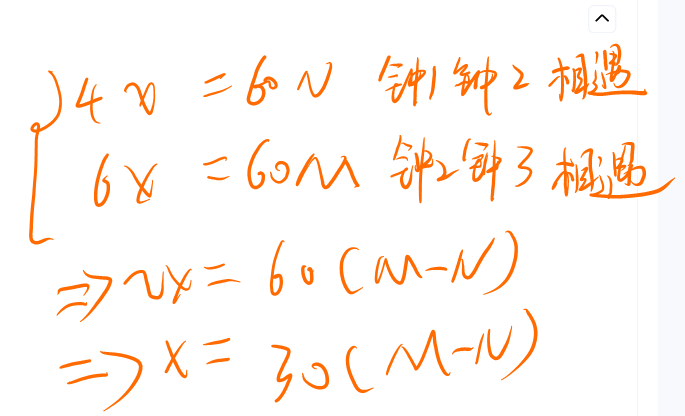 4x = 60N 钟1钟2相遇
6x = 60M 钟2钟3相遇
=> 2x = 60(M-N)
=> x = 30(M-N)